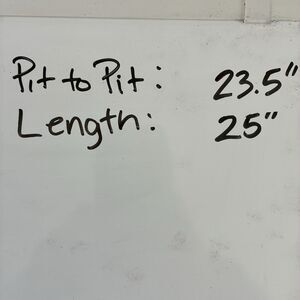 Pit to Pit: 23.5"
Length: 25"